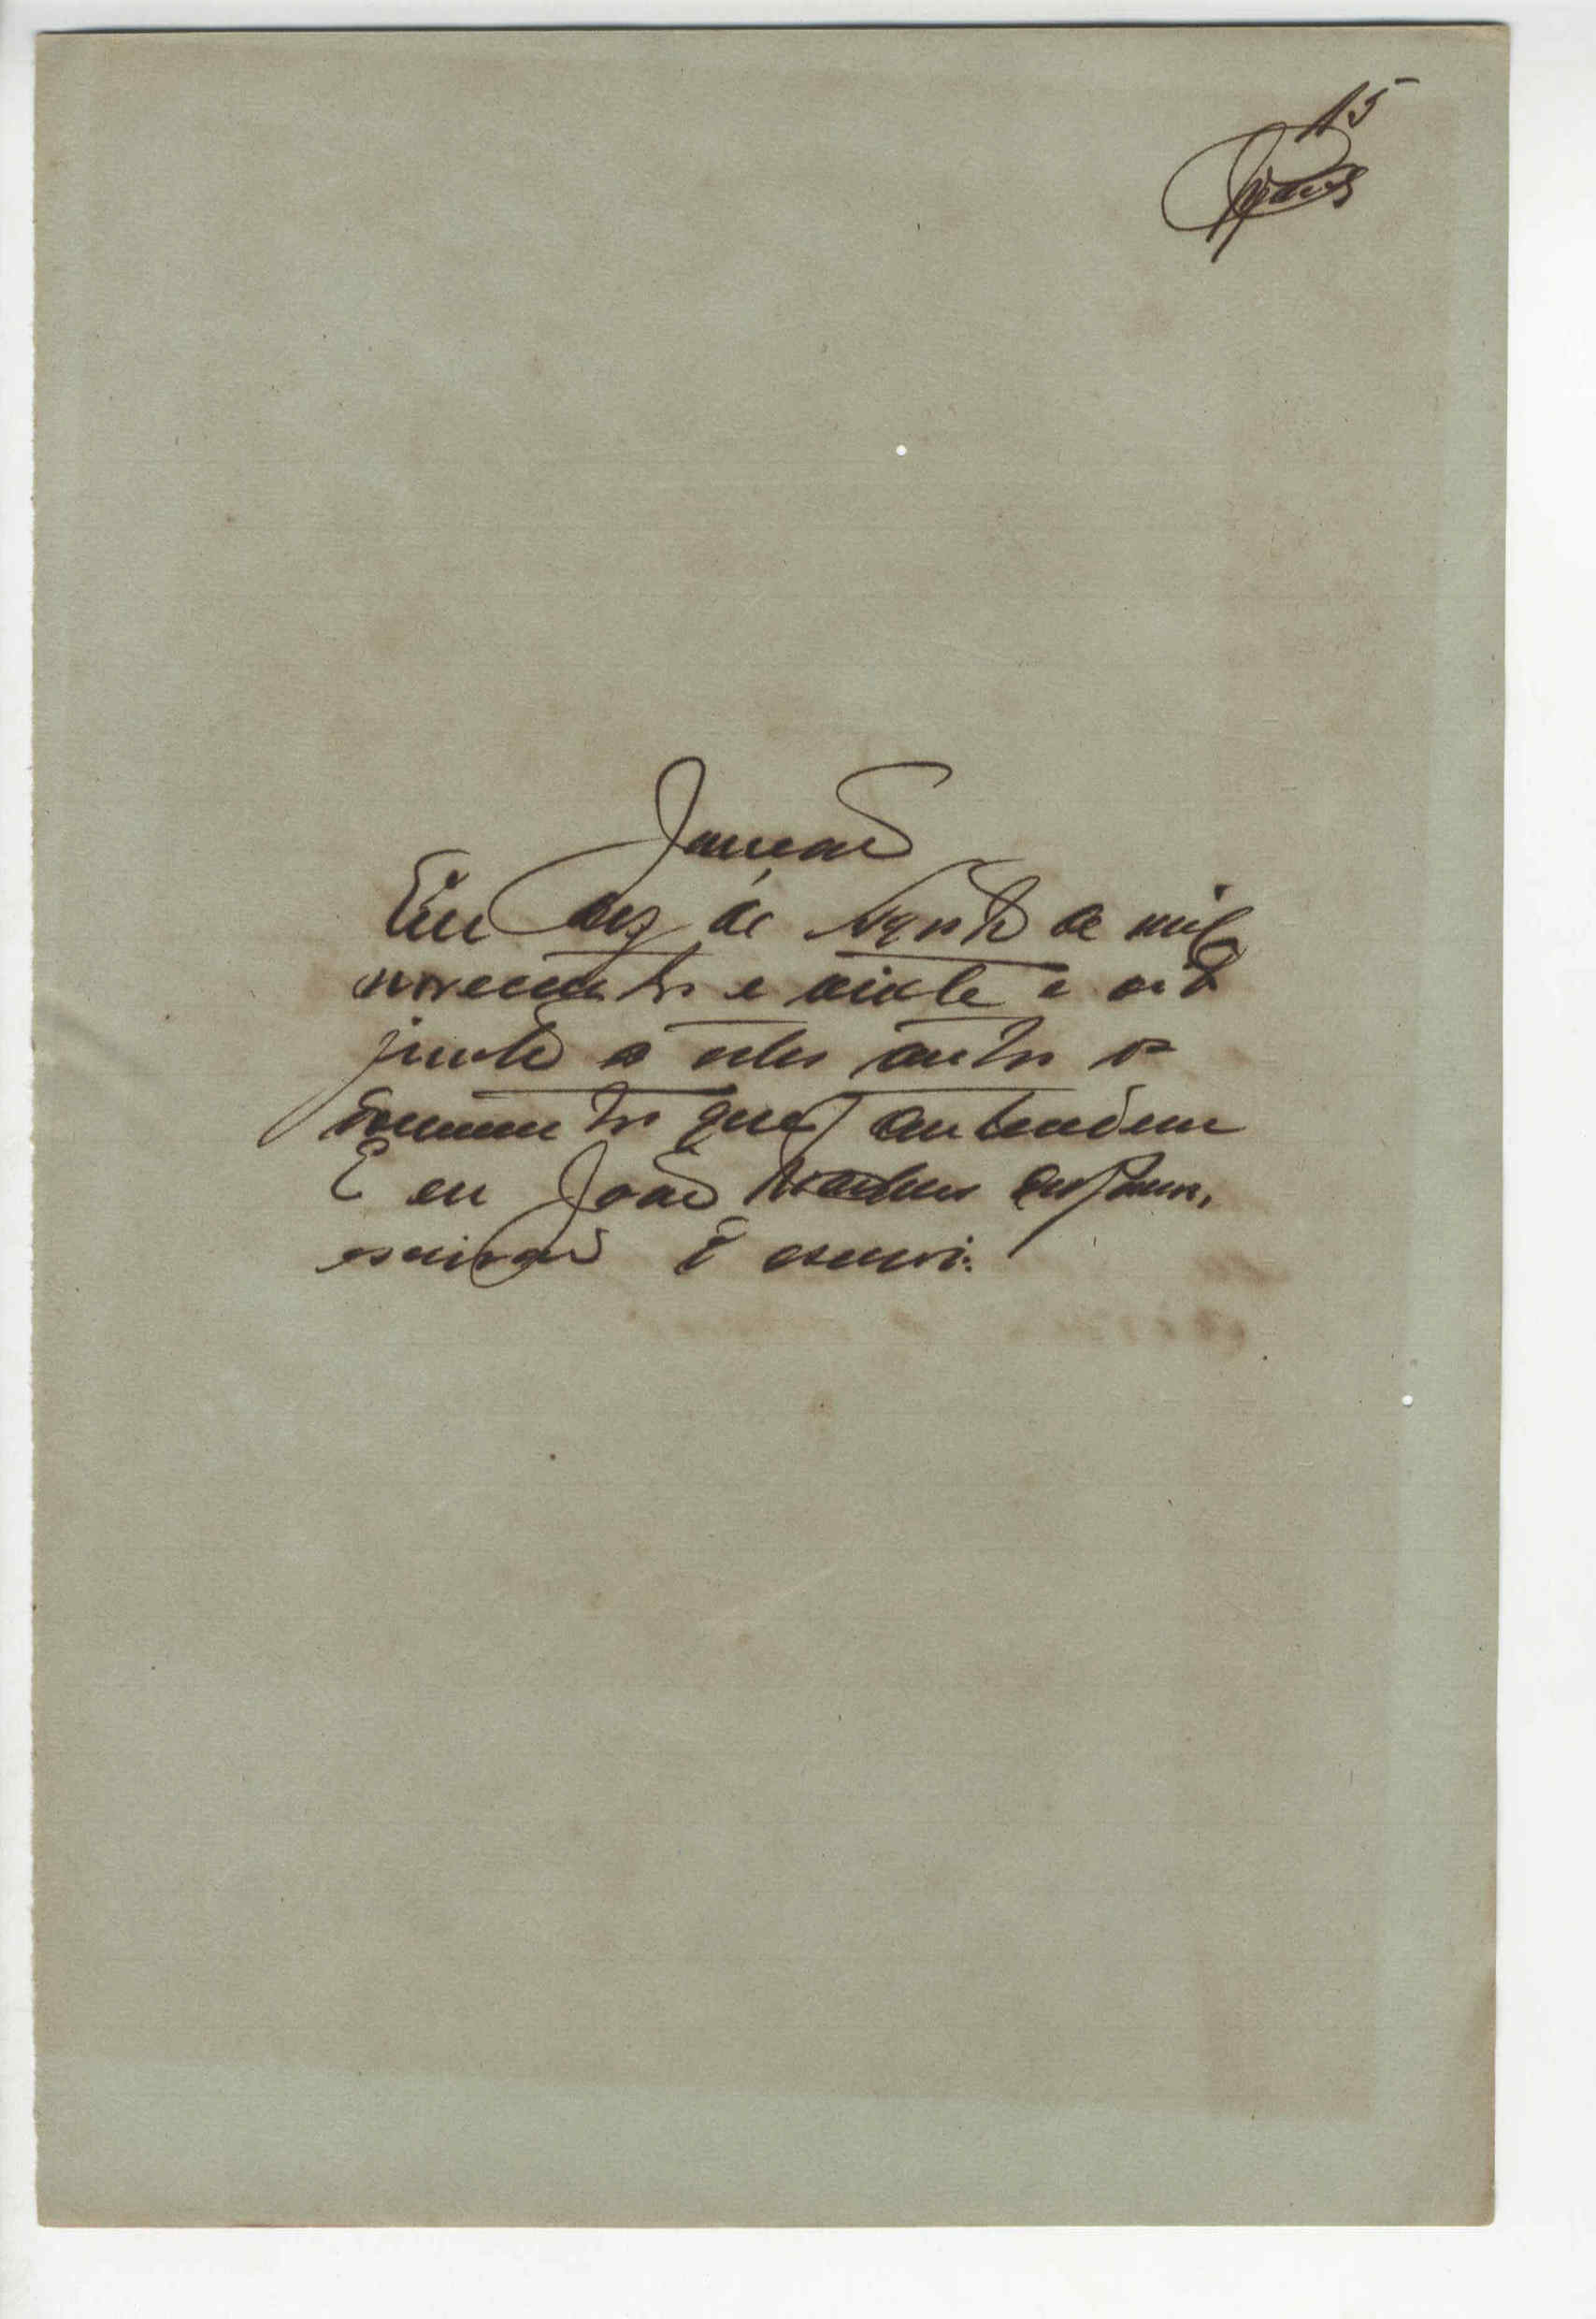 15
Juncção
Em dez de Agosto de mil
novecentos e vinte e oito
junto a estes autos os
documentos que
E eu João
escrivão o escrevi.